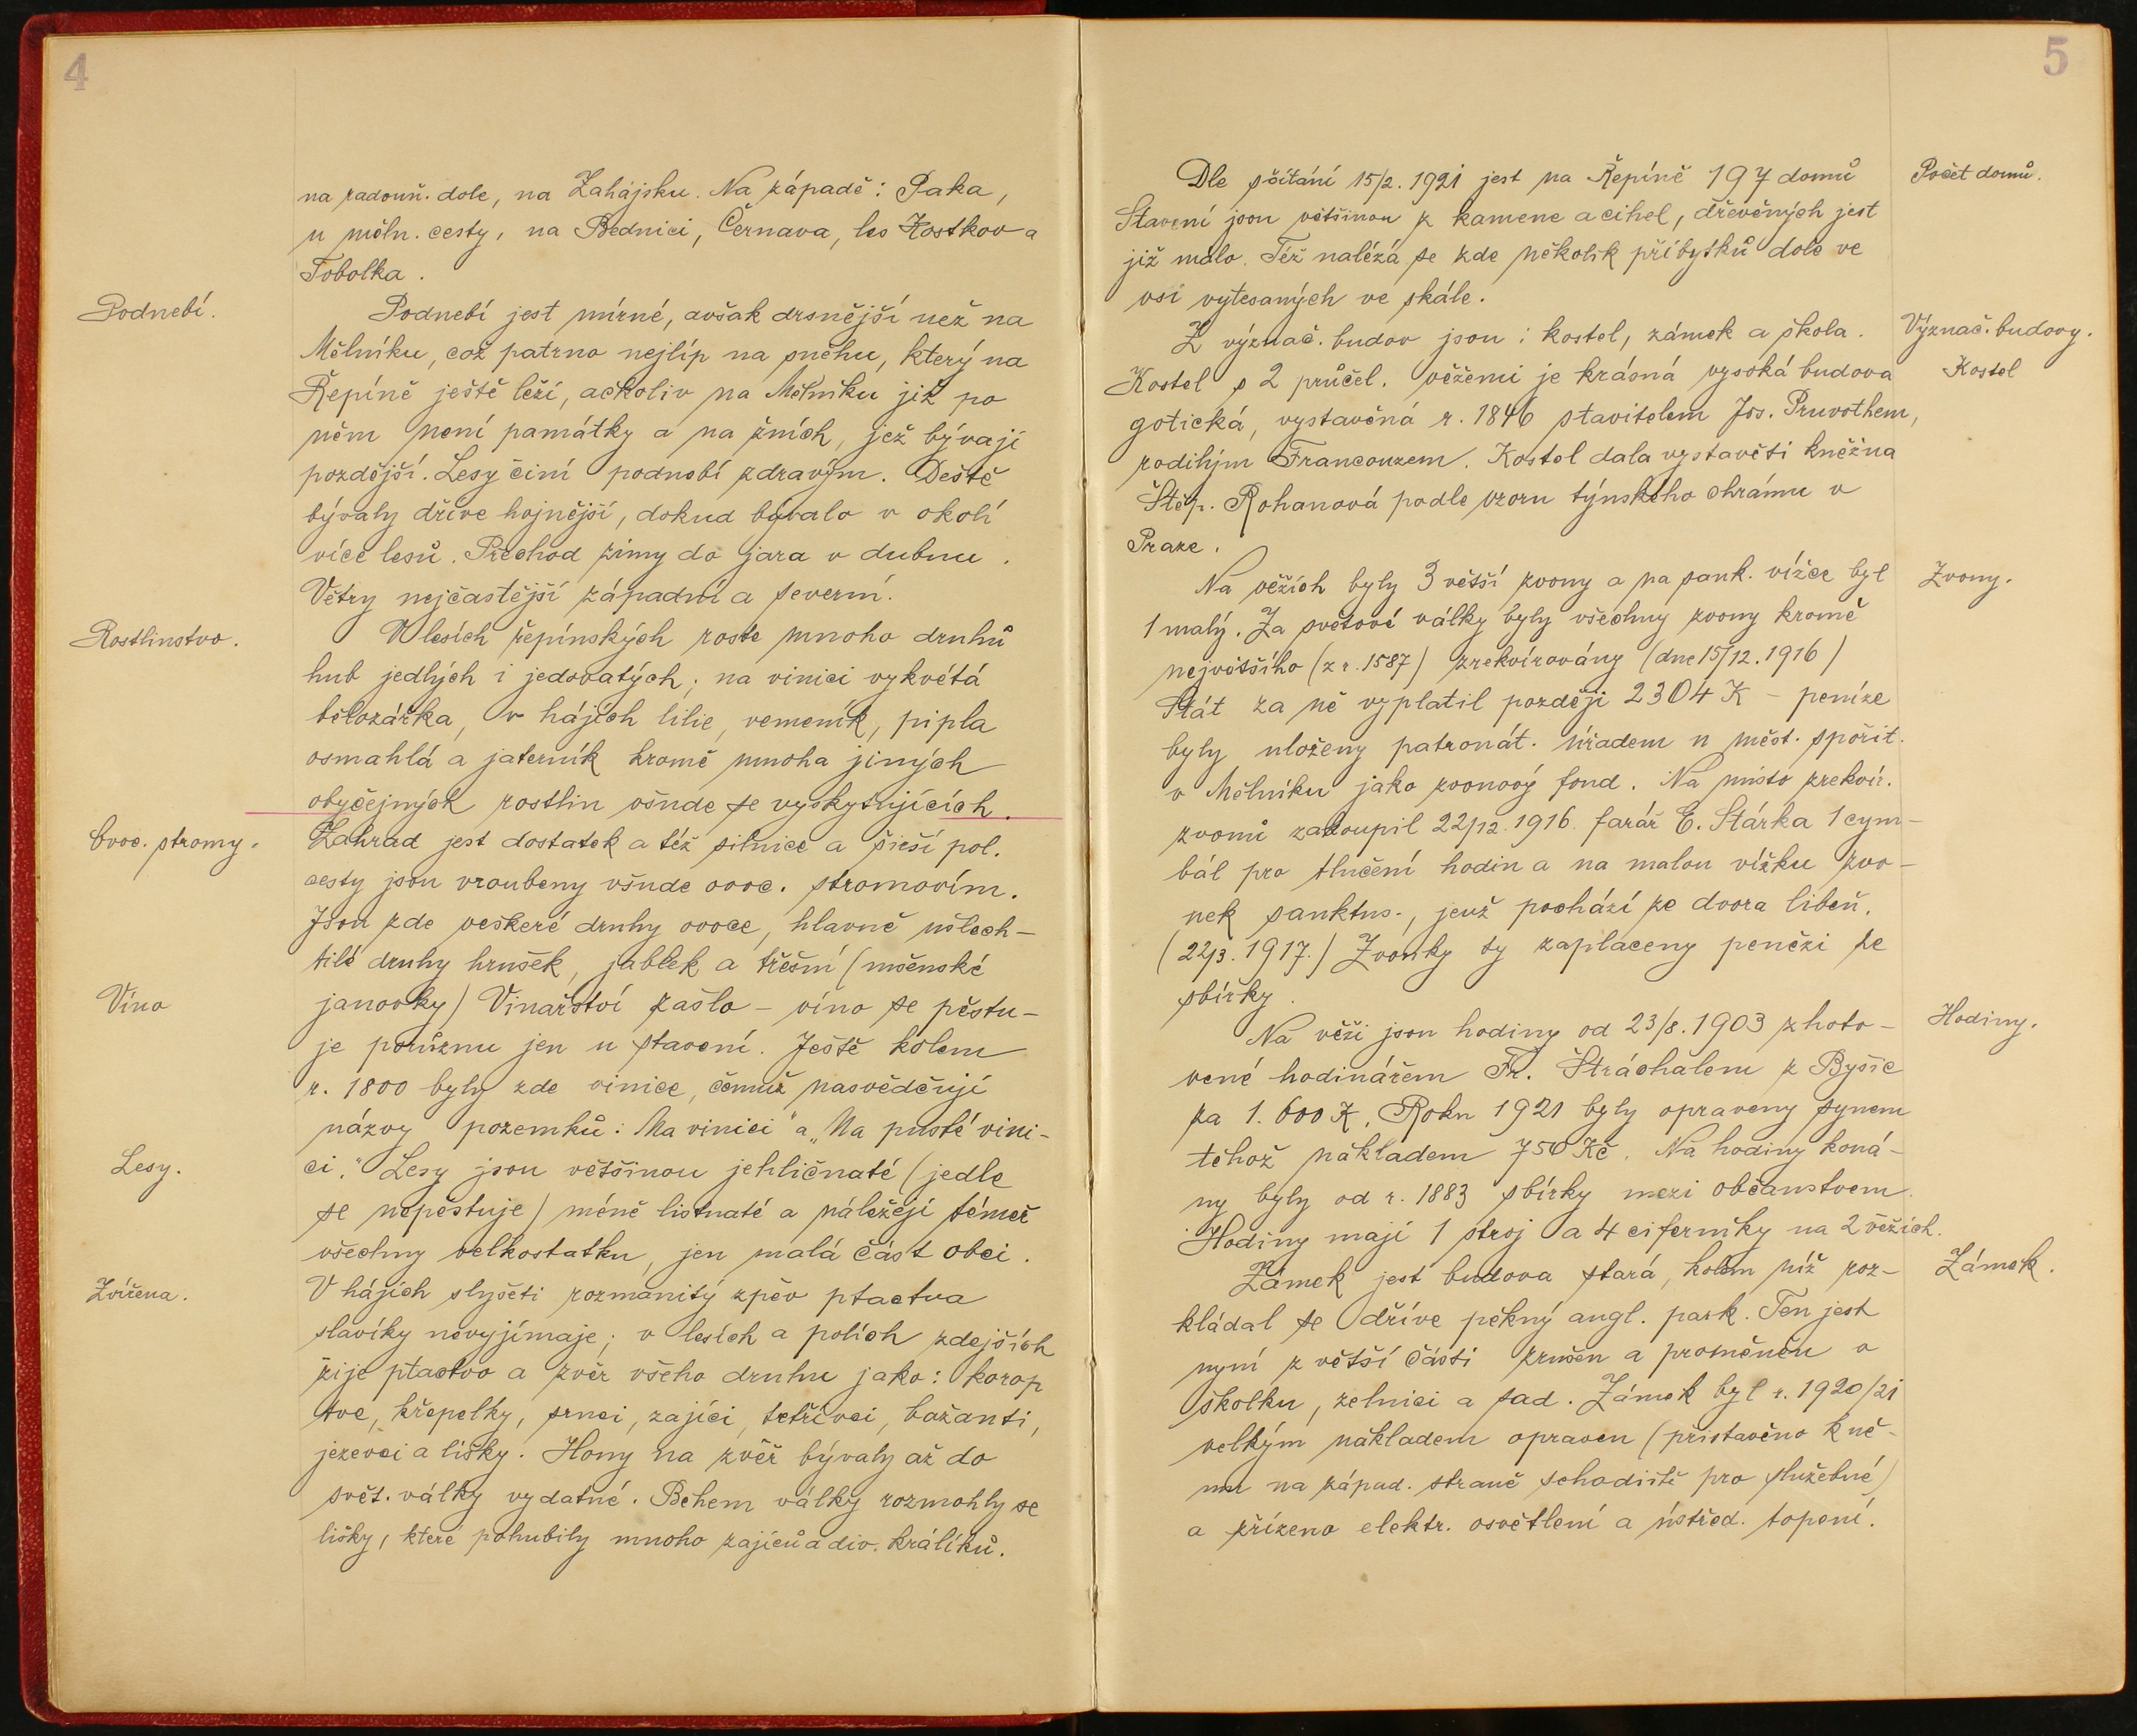 4
na radouň. dole, na Zahájsku. Na západě: Paka,
u měln. cesty, na Bednici, Černava, les Kostkov a
Tobolka.
Podnebí.
Podnebí jest mírné, avšak drsnější než na
Mělníku, což patrno nejlíp na sněhu, který na
Řepíně ještě leží, ačkoliv na Mělníku již po
něm není památky a na žních, jež bývají
pozdější. Lesy činí podnebí zdravým. Deště
bývaly dříve hojnější, dokud bývalo v okolí
více lesů. Přechod zimy do jara v dubnu.
Větry nejčastější západní a severní.
Rostlinstvo.
V lesích řepínských roste mnoho druhů
hub jedlých i jedovatých; na vinici vykvétá
bělozářka, v hájích lilie, vemeník, pipla
osmahlá a jaterník kromě mnoha jiných
obyčejných rostlin všude se vyskytujících.
Ovoc. stromy.
Zahrad jest dostatek a též silnice a širší pol.
cesty jsou vroubeny všude ovoc. stromovím.
Jsou zde veškeré druhy ovoce, hlavně ušlech-
tilé druhy hrušek, jablek a třešní (mšenské
Víno
janovky) Vinařství zašlo – víno se pěstu-
je pořůznu jen u stavení. Ještě kolem
r. 1800 byly zde vinice, čemuž nasvědčují
názvy pozemků: Na vinici" a „Na pusté vini-
Lesy.
ci." Lesy jsou většinou jehličnaté (jedle
se nepěstuje) méně listnaté a náležejí téměř
všechny velkostatku, jen malá část obci.
Zvířena.
V hájích slyšeti rozmanitý zpěv ptactva
slavíky nevyjímaje; v lesích a polích zdejších
žije ptactvo a zvěř všeho druhu jako: korop
tve, křepelky, srnci, zajíci, tetřívci, bažanti,
jezevci a lišky. Hony na zvěř bývaly až do
svět. války vydatné. Během války rozmohly se
lišky, které pohubily mnoho zajíců a div. králíků.
5
Počet domů.
Dle sčítání 15/2. 1921 jest na Řepíně 197 domů
Stavení jsou většinou z kamene a cihel, dřevěných jest
již málo. Též nalézá se zde několik příbytků dole ve
vsi vytesaných ve skále.
Význač. budovy.
Z význač. budov jsou: kostel, zámek a škola.
Kostel
Kostel s 2 průčel. věžemi je krásná vysoká budova
gotická, vystavěná r. 1846 stavitelem Jos. Pruvothem,
rodilým Francouzem. Kostel dala vystavěti kněžna
Štěp. Rohanová podle vzoru týnského chrámu v
Praze.
Zvony.
Na věžích byly 3 větší zvony a na sank. vížce byl
1 malý. Za světové války byly všechny zvony kromě
největšího (z r. 1587) zrekvírovány (dne 15/12. 1916)
Stát za ně vyplatil později 2304 K – peníze
byly uloženy patronát. úřadem u měst. spořit.
v Mělníku jako zvonový fond. Na místo zrekvír.
zvonů zakoupil 22/12. 1916. farář E. Stárka 1 cym-
bál pro tlučení hodin a na malou vížku zvo-
nek sanktus., jenž pochází ze dvora libeň.
(22/3. 1917.) Zvonky ty zaplaceny penězi ze
sbírky.
Hodiny.
Na věži jsou hodiny od 23/8. 1903 zhoto-
vené hodinářem Fr. Štráchalem z Byšic
za 1.600 K. Roku 1921 byly opraveny synem
téhož nákladem 750 Kč. Na hodiny koná-
ny byly od r. 1883 sbírky mezi občanstvem.
Hodiny mají 1 stroj a 4 ciferníky na 2 věžích.
Zámek.
Zámek jest budova stará, kolem níž roz-
kládal se dříve pěkný angl. park. Ten jest
nyní z větší části zrušen a proměněn v
školku, zelnici a sad. Zámek byl r. 1920/21
velkým nákladem opraven (přistavěno k ně-
mu na západ. straně schodiště pro služebné)
a zřízeno elektr. osvětlení a ústřed. topení.